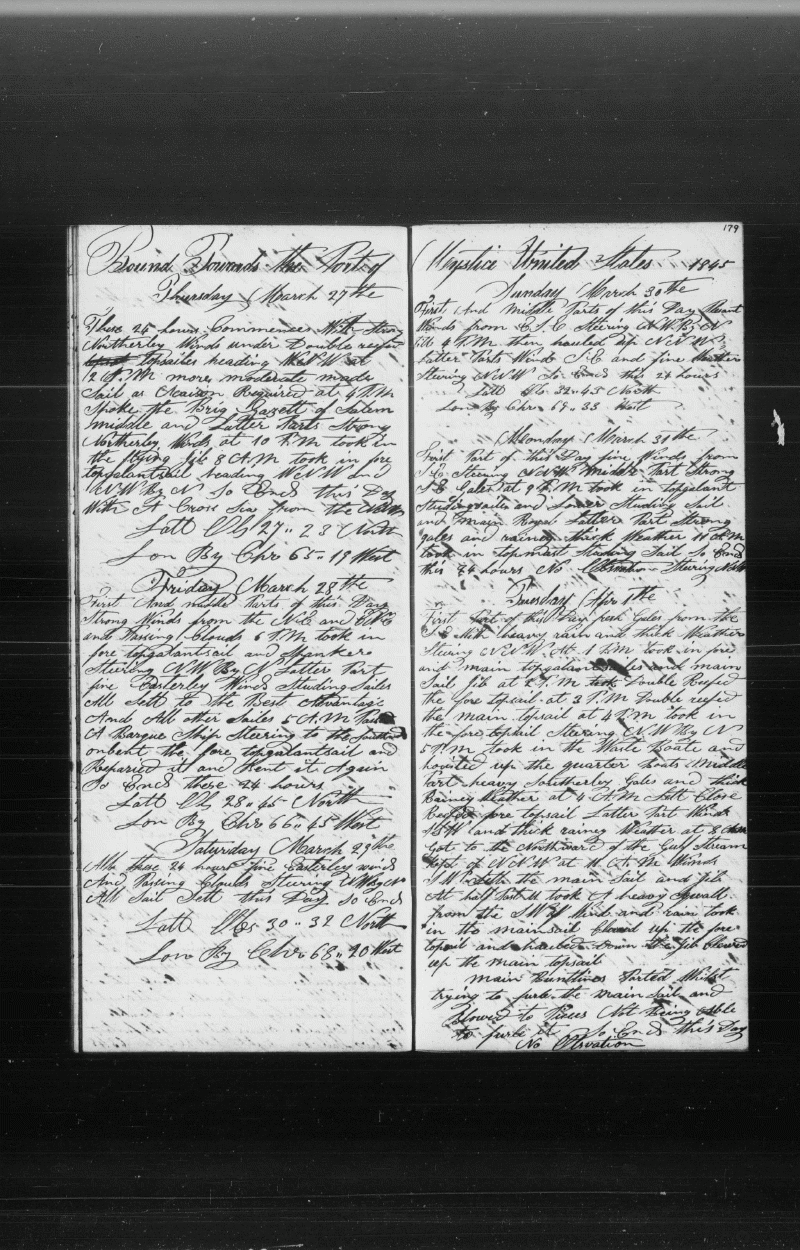 Bound Towards the Port of
Thursday March 27the
These 24 hours Commences With Strong
Northerley Winds under Double reefed
topsailes heading W N W at
12 P.M more moderate made
Sail as Ocaison Required at 4 P.M
Spoke the Brig Gazett of Salem
middle and Latter Parts Strong
Northerley Winds at 10 P.M took in
the flying jib 8 A.M took in fore
topgalantsail heading W N W and
N W By N So Ends this Day
With A Cross Sea from the
Latt Ob 27" 23 North
Lon By Chro 65- 19 West
Friday March 28the
First And midde Parts of this Day
Strong Winds from the N.E and
and Passing Clouds 6 P.M took in
fore topgalantsail and Spanker
Steering N W By N Latter Part
fine Easterley Winds Studing Sailes
All Sett to the Best Advantage
And All other Sailes 5 A.M
A Barque Ship Steering to the Southard
onbent the fore topgalantsail and
Reparied it and Bent it Again
So Ends these 24 hours
Latt Ob 28" 45 North
Lon By Chro 66" 45 West
Saturday March 29the
All these 24 hours fine Easterley winds
And Passing Clouds Steering N W By N
All Sail Sett this Day So Ends
Latt Obs 30" 32 North
Lon By Chro 68" 20 West
179
Mystic United States 1845
Sunday March 30the
First And middle Parts of this Day
Winds from E.S.E Steering N W By N
till 4 P.M then hauled up N N W
Latter Parts Winds S.E and fine Weather
Steering N N W So Ends this 24 hours
Latt Ob 32"45 North
Lon By Chro 69"33 West
Monday March 31the
First Part of this Day fine Winds from
S.E Steering N N W Middle Part Strong
S E Gales at 9 P.M took in topgalant
Studingsailes and Lower Studing Sail
and main Royal Latter Part Strong
gales and rainey thick Weather A.M
took in topmast Studing Sail So Ends
this 24 hours No Steering
Tuesday Apri 1the
First Part of this Day fresh Gales from the
S E With heavy rain and thick Weather
Steering N N W At 1 P.M took in fore
and main topgalant and main
Sail jib at 2 P.M Double Reefed
the fore topsail at 3 P.M Double reefed
the main topsail at 4 P.M took in
the fore topsail Steering N W By N
5 P.M took in the Waste Boate and
hoisted up the quarter Boats Middle
Part heavy Southerley Gales and thick
Rainey Weather at 4 A.M Sett Close
Reefed fore topsail Latter Part Winds
S W and thick rainey Weather at 8
Got to the Northward of the Gulf Stream
Kept of N N W at 11 A.M Winds
S W the main Sail and jib
At half Past 11 took A heavy Squall
from the S W Wind and rain took
in the mainsail Clewed up the fore
topsail and down the jib Clewed
up the main topsail
main Buntlines Parted Whilst
trying to furle the mainsail and
Blowed to Pieces Not Being Able
to furle it So Ends this Day
No